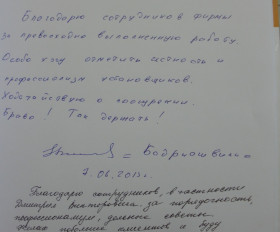 Благодарю сотрудников фирмы
за превосходно выполненную работу.
Особо хочу отметить честность и
профессионализм установщиков.
Ходатайствую о поощрении.
Браво! Так держать!
= Байриашвили =
7.06.2013г.
Благодарю сотрудников, в частности
Дмитрия Викторовича за порядочность,
профессионализм, дельные советы
клиентов и буду